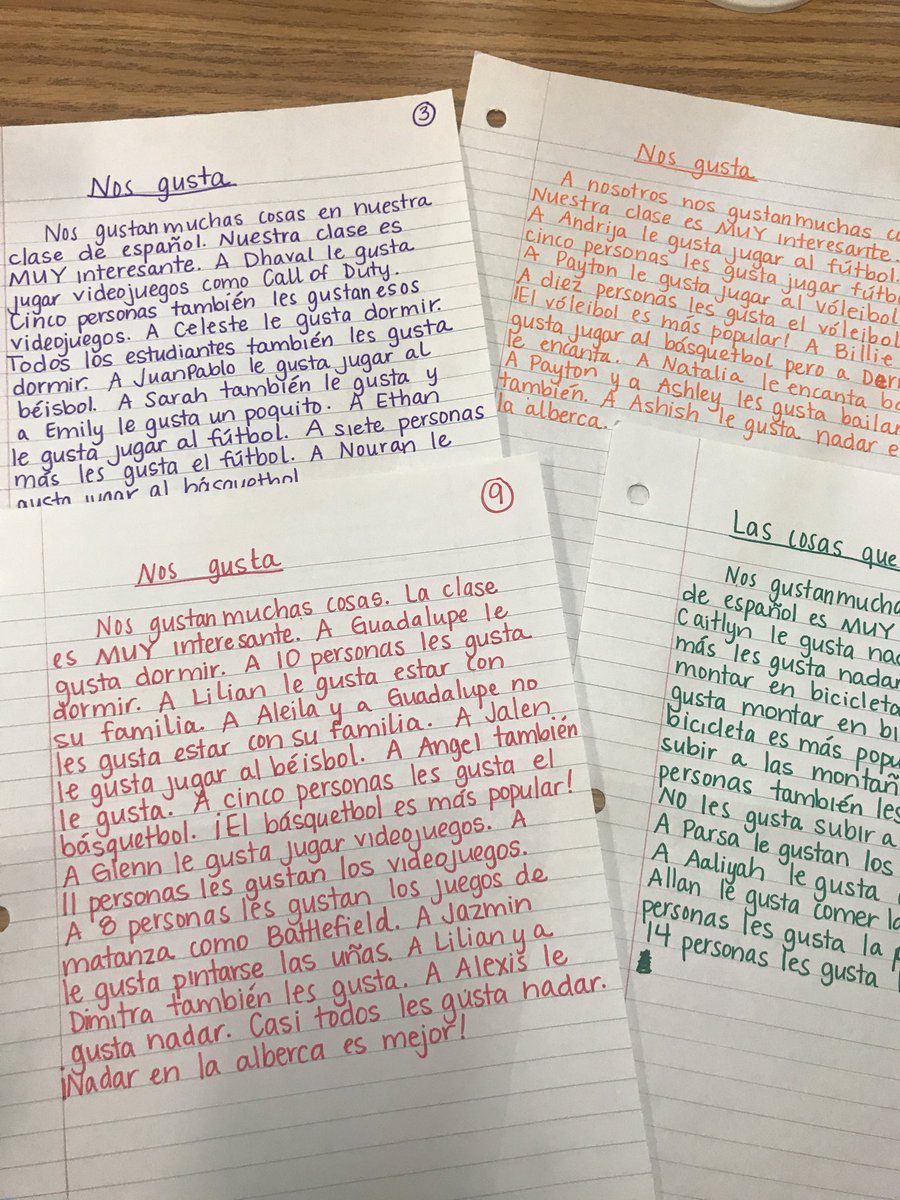 3
Nos gusta
Nos gustan muchas cosas en nuestra
clase de español. Nuestra clase es
MUY interesante. A Dhaval le gusta
jugar videojuegos como Call of Duty.
Cinco personas también les gustan esos
videojuegos. A Celeste le gusta dormir.
Todos los estudiantes también les gusta
dormir. A JuanPablo le gusta jugar al
béisbol. A Sarah también le gusta y
a Emily le gusta un poquito. A Ethan
le gusta jugar al fútbol. A siete personas
más les gusta el fútbol. A Nouran le
gusta jugar al básquetbol
Nos gusta
A nosotros nos gustan muchas
Nuestra clase es MUY interesante.
A Andrija le gusta jugar al fútbol.
cinco personas les gusta jugar
A Payton le gusta jugar al vóleibol
A diez personas les gusta el vóleibol
¡El vóleibol es más popular! A Billie
gusta jugar al básquetbol pero a
le encanta. A Natalia le encanta
A Payton y a Ashley les gusta bailar
también. A Ashish le gusta nadar
la alberca.
9
Nos gusta
Nos gustan muchas cosas. La clase
es MUY interesante. A Guadalupe le
gusta dormir. A 10 personas les gusta
dormir. A Lilian le gusta estar con
su familia. A Aleila y a Guadalupe no
les gusta estar con su familia. A Jalen
le gusta jugar al béisbol. A Angel también
le gusta. A cinco personas les gusta el
básquetbol. ¡El básquetbol es más popular!
A Glenn le gusta jugar videojuegos. A
11 personas les gustan los videojuegos.
A 8 personas les gustan los juegos de
matanza como Battlefield. A Jazmin
le gusta pintarse las uñas. A Lilian y a
Dimitra también les gusta. A Alexis le
gusta nadar. Casi todos les gusta nadar.
¡Nadar en la alberca es mejor!
Las cosas que
Nos gustan
de español es MUY
Caitlyn le gusta
más les gusta nadar
montar en bicicleta
gusta montar en
bicicleta es más
subir a las
personas también les
No les gusta subir a
A Parsa le gustan los
A Aaliyah le gusta
Allan le gusta comer
personas les gusta la
14 personas les gusta